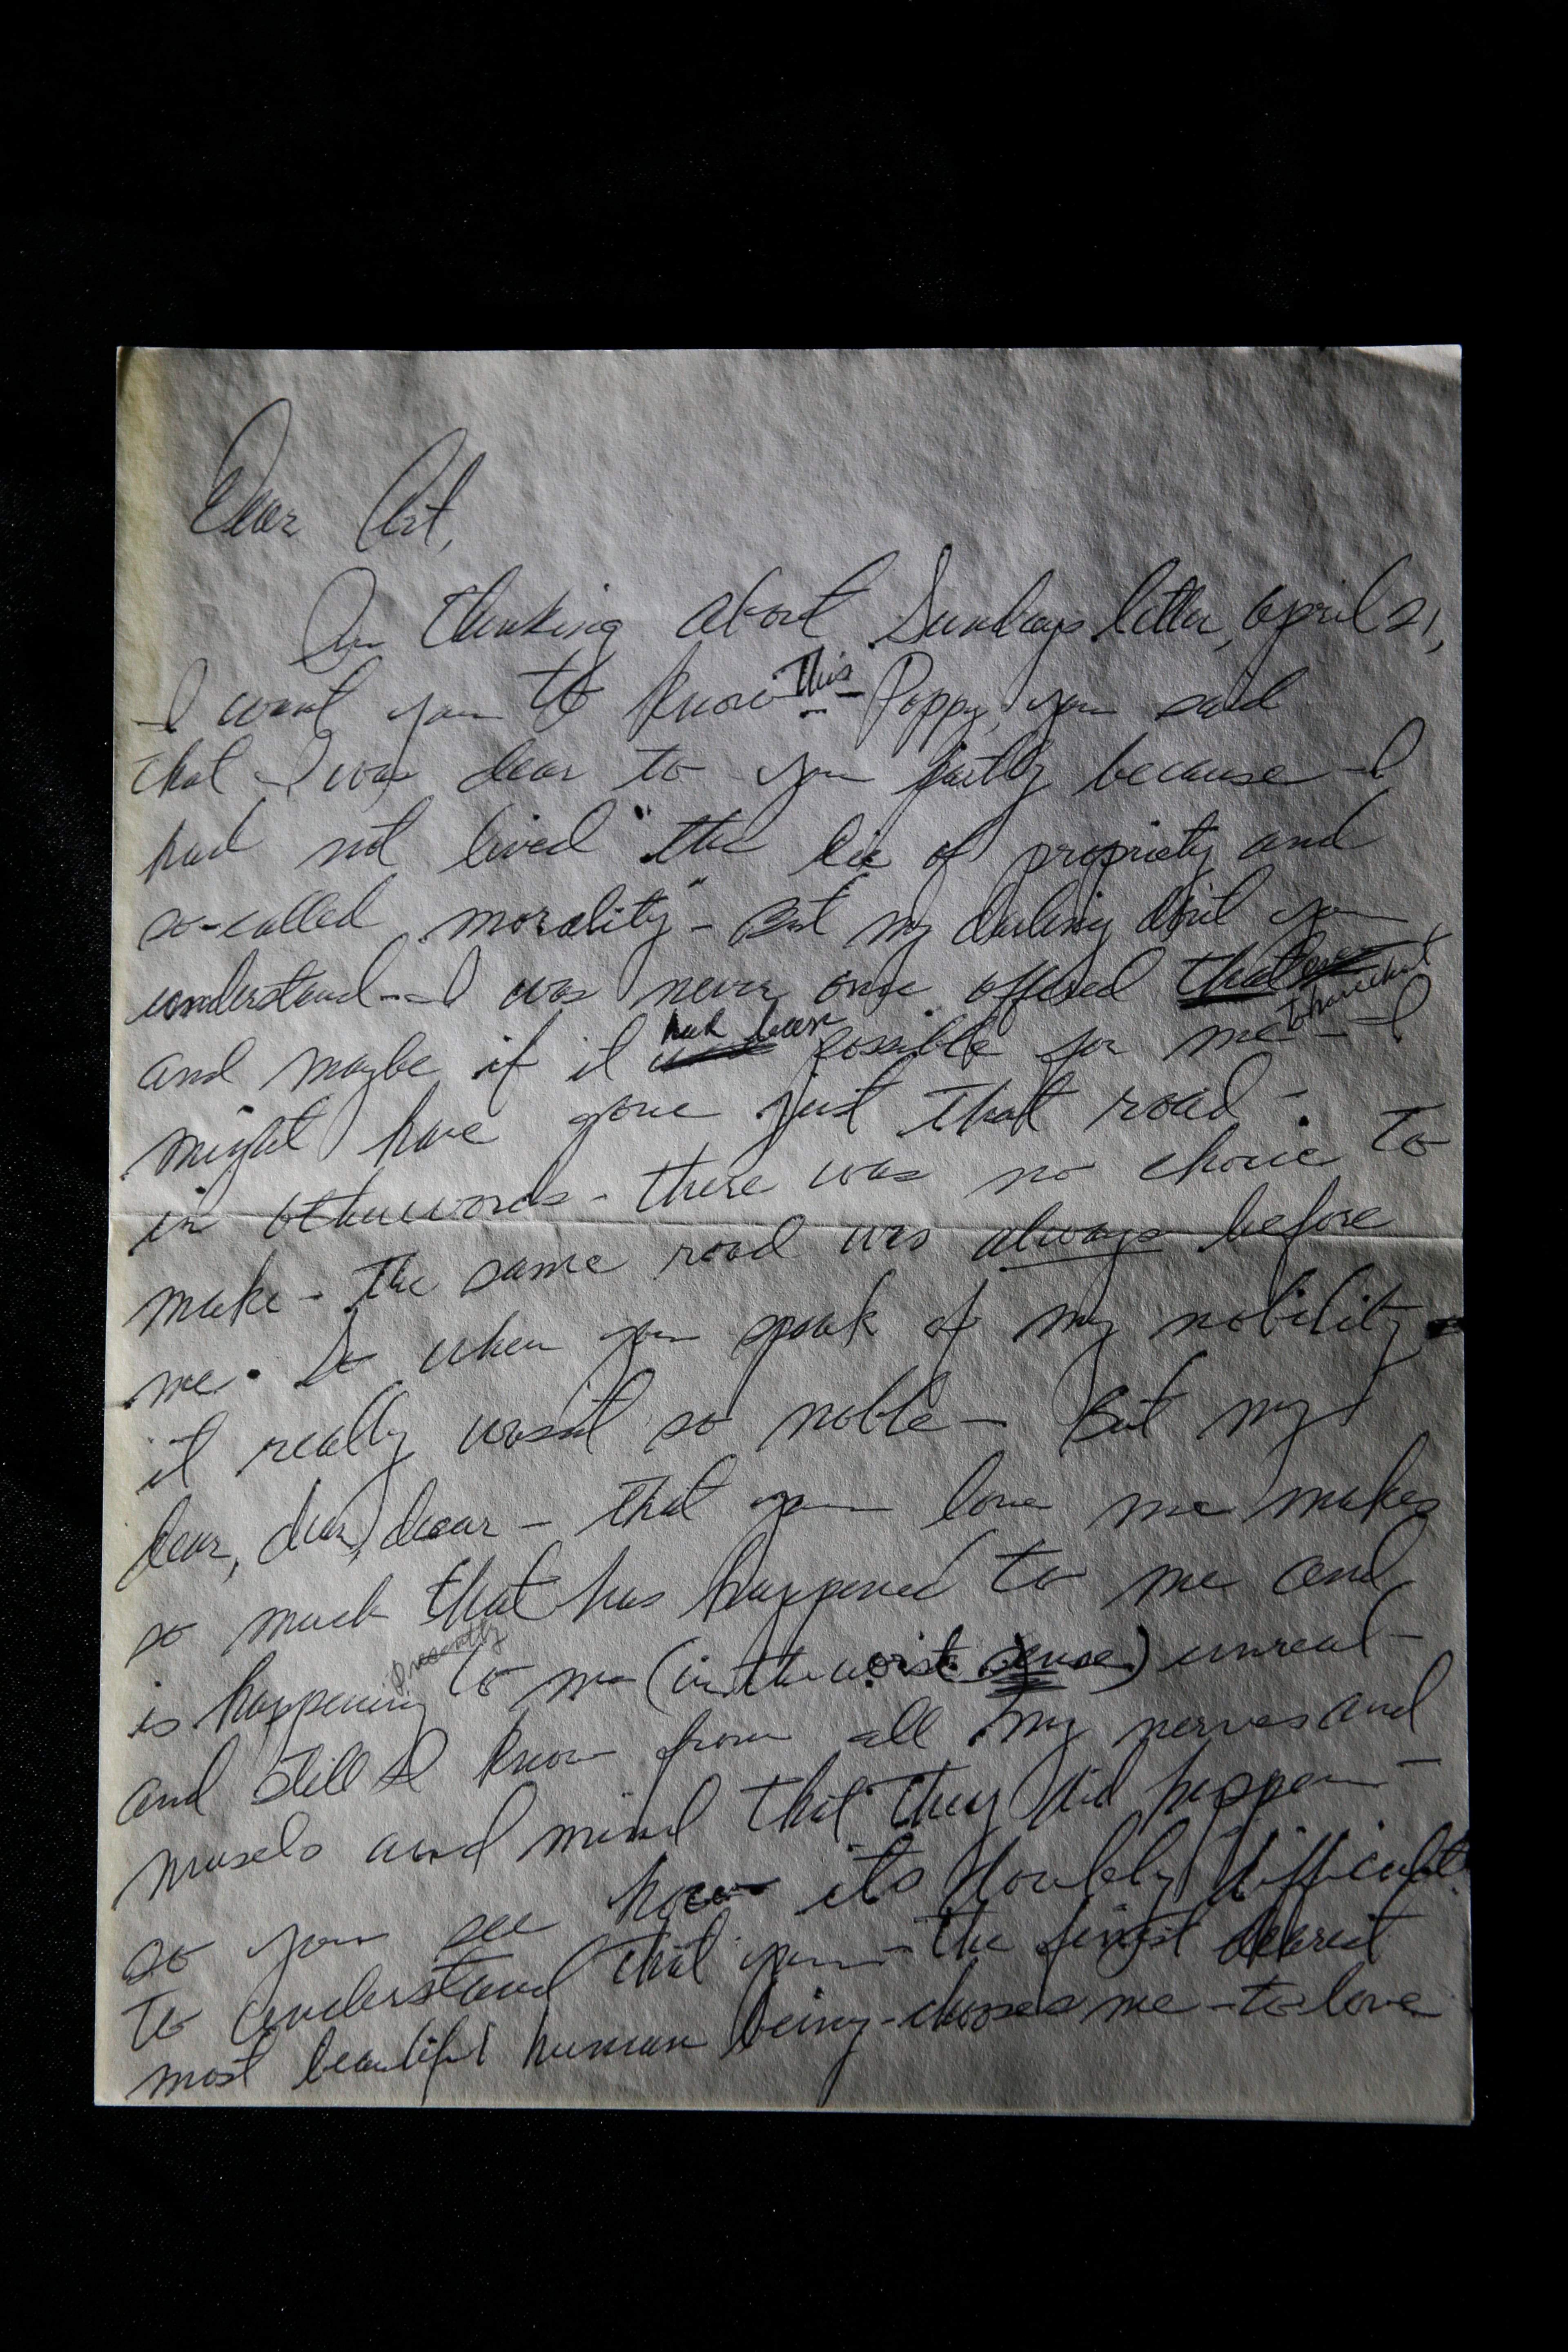 Dear Art,
In thinking about Sundays letter, April 21,
I want you to know this - Poppy, you said
that I was dear to you partly because I
had not lived "the lie of propriety and
so-called morality" - But my darling don't you
understand - I was never once offered that
and maybe if it had been possible for me to have that - I
might have gone just that road -
in otherwords - there was no choice to
make - The same road was always before
me. So when you speak of my nobility
it really wasn't so noble - But my
dear, dear, dear - that you love me makes
so much that has happened to me and
is happening presently to me (in the worst sense) unreal -
and still I know from all my nerves and
musels and mind that they did happen -
so you see how its doubly difficult
to understand that you - the finest dearest
most beautiful human being - chooses me - to love